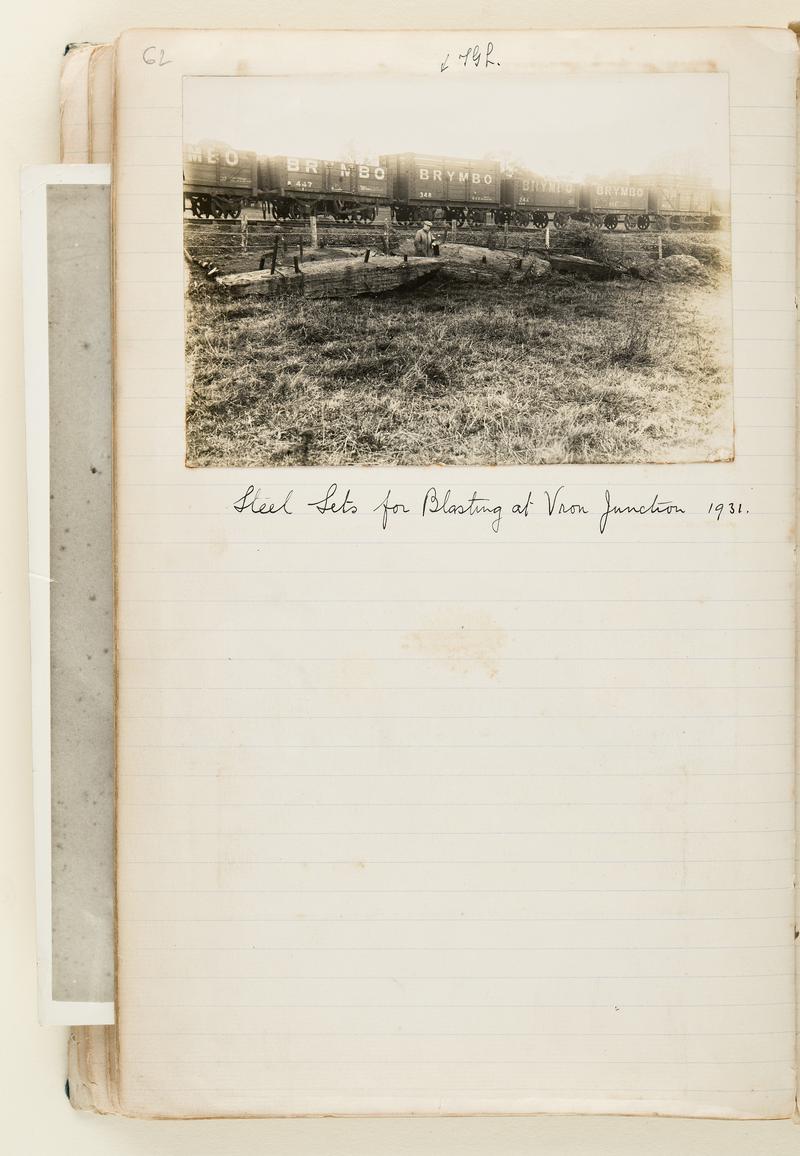 62
↓ TGL.
MBO BRYMBO BRYMBO BRYMBO BRYMBO
447 348
Steel Sets for Blasting at Vron Junction 1931.